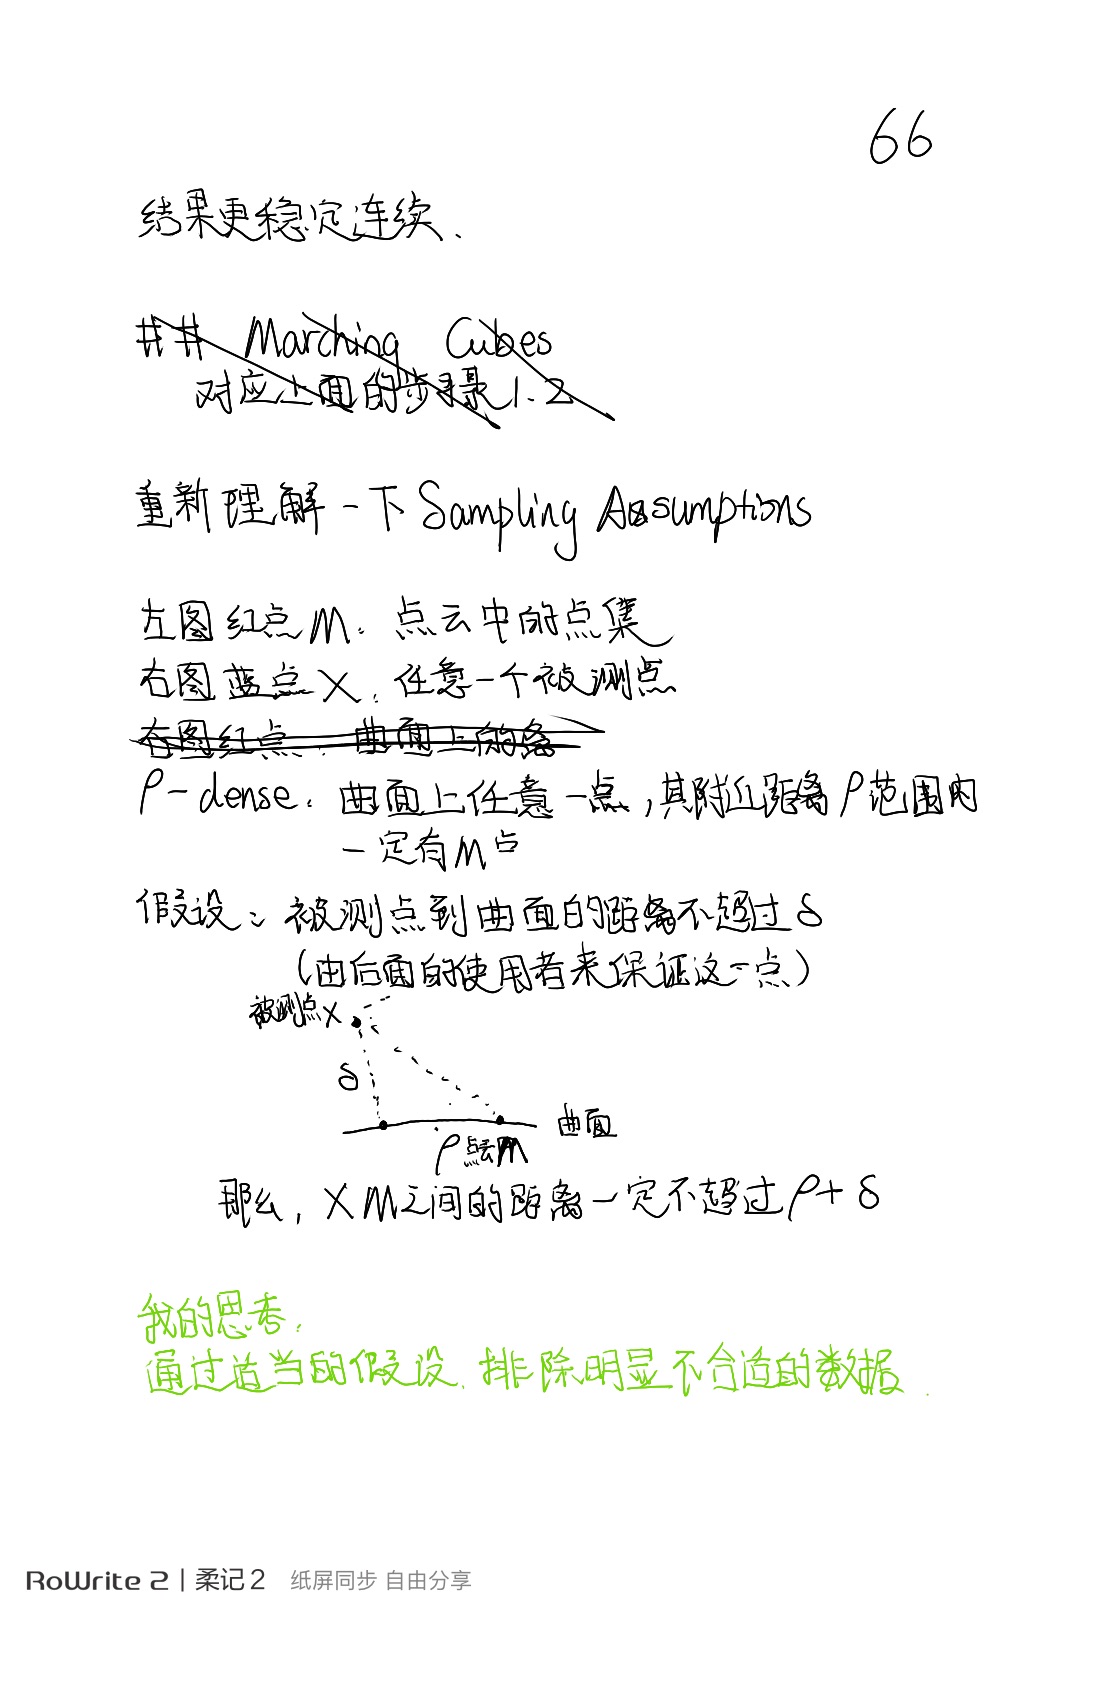 66
结果更稳定连续、
## Marching Cubes
对应上面的步骤1.2
重新理解一下Sampling Assumptions
左图红点M: 点云中的点集
右图蓝点X: 任意一个被测点
右图红点: 曲面上的
ρ-dense: 曲面上任意一点,其附近距离ρ范围内
一定有M点
假设: 被测点到曲面的距离不超过δ
(由后面的使用者来保证这一点)
被测点X
δ
曲面
ρ 点云M
那么, X M之间的距离一定不超过ρ+δ
我的思考:
通过适当的假设、排除明显不合适的数据.
RoWrite 2 | 柔记2 纸屏同步 自由分享